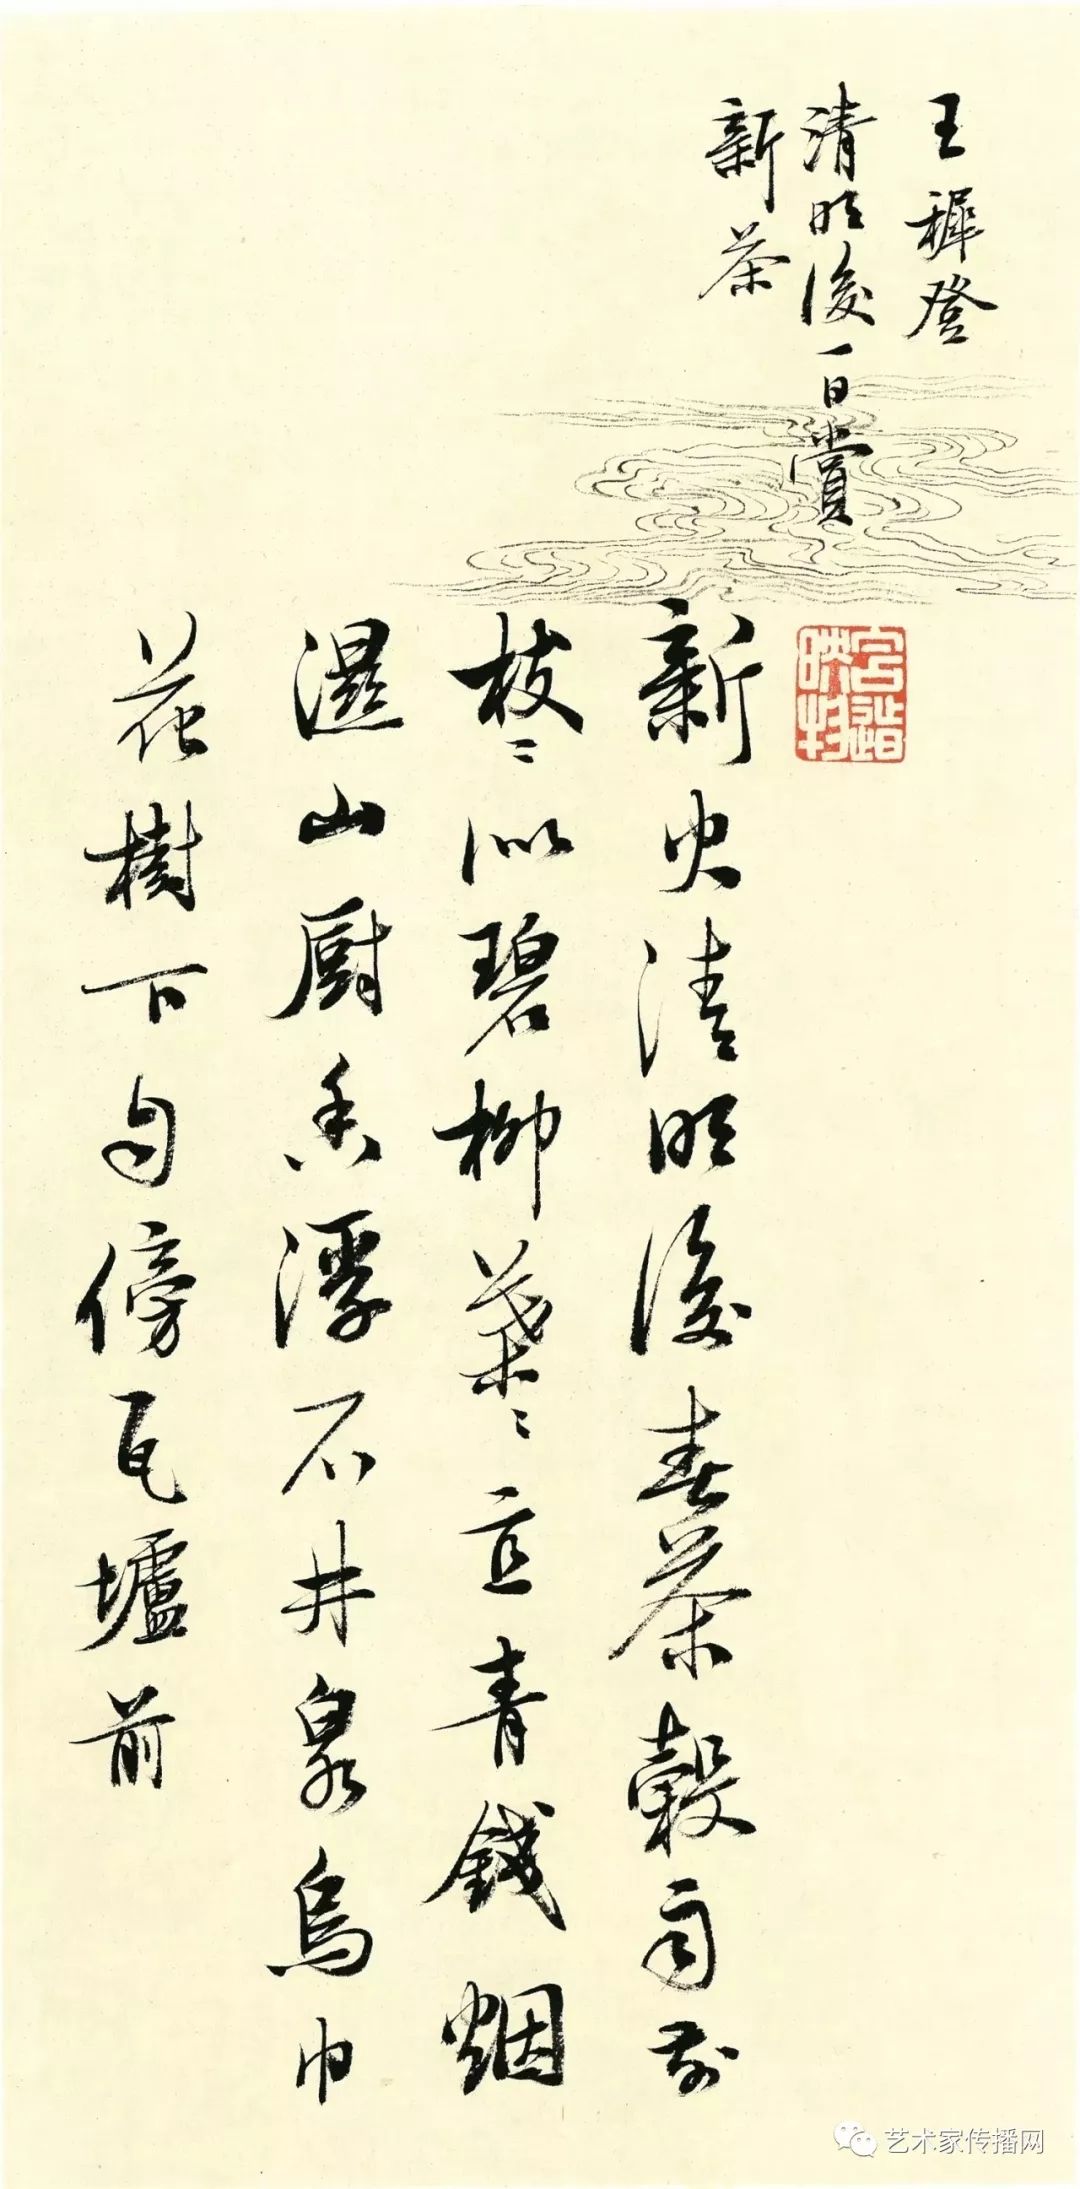 王稺登
清明後一日賞
新茶
新火清明後春茶穀雨前
枝〻似碧柳葉〻直青錢烟
濕山厨香浮石井泉烏巾
花樹下自傍瓦壚前
艺术家传播网